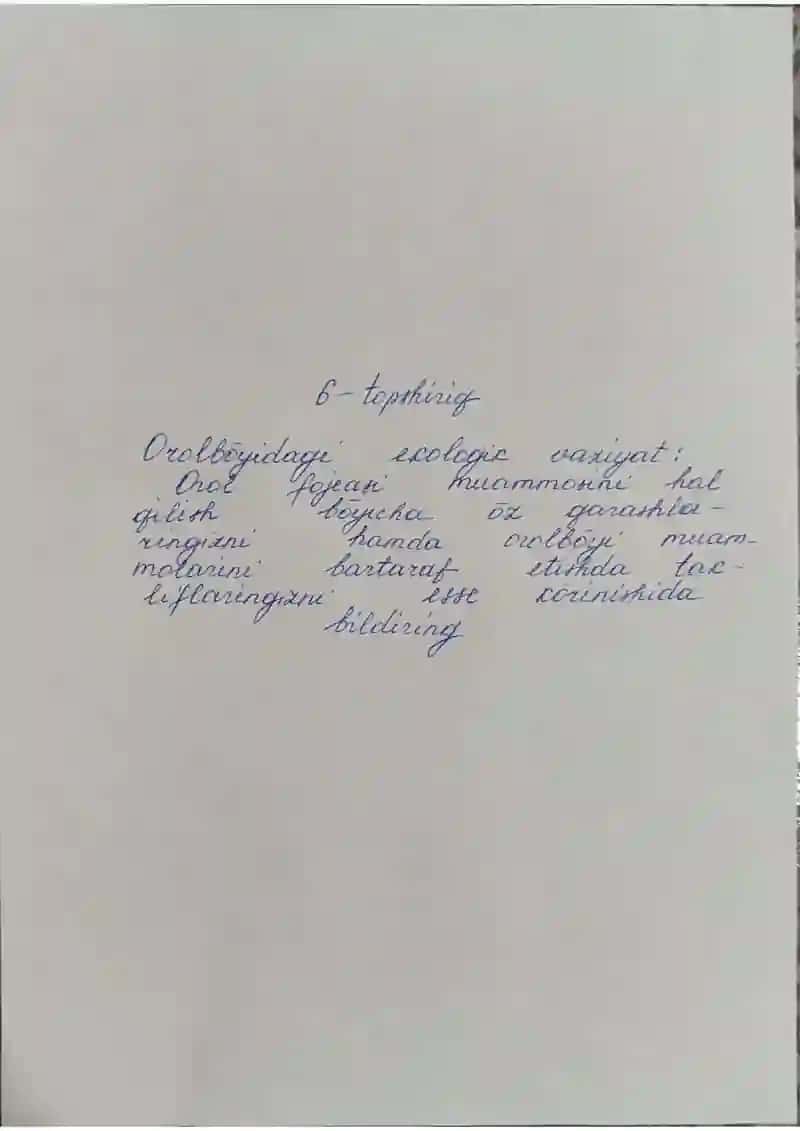 6 - topshiriq
Orolbōyidagi ekologik vaziyat:
Orol fojeasi muammosini hal
qilish bōyicha ōz qarashla-
ringizni hamda orolbōyi muam-
molarini bartaraf etishda tak-
liflaringizni esse kōrinishida
bildiring